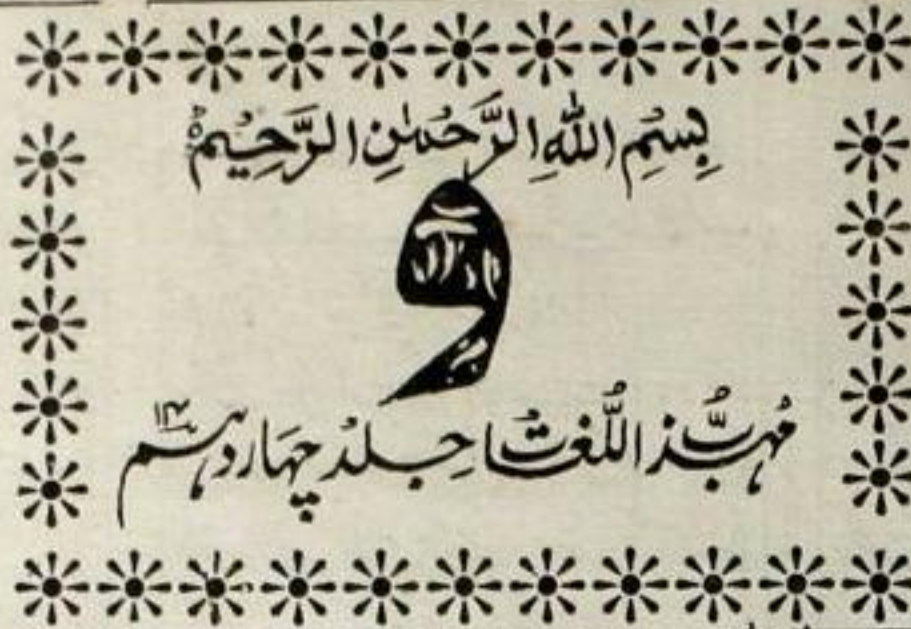 بِسْمِ اللّٰهِ الرَّحْمٰنِ الرَّحِیْمِ
و
مُہذَّبُ اللُّغَات جِلد چہَاردہم ۱۴